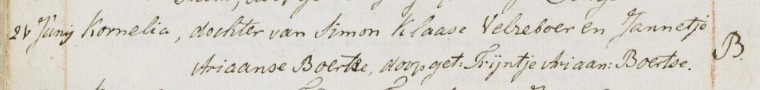 21 Junij Kornelia, dochter van Simon Klaase Velzeboer en Jannetje
Ariaanse Boertse, doopget: Trijntje Ariaan: Boertse. B.